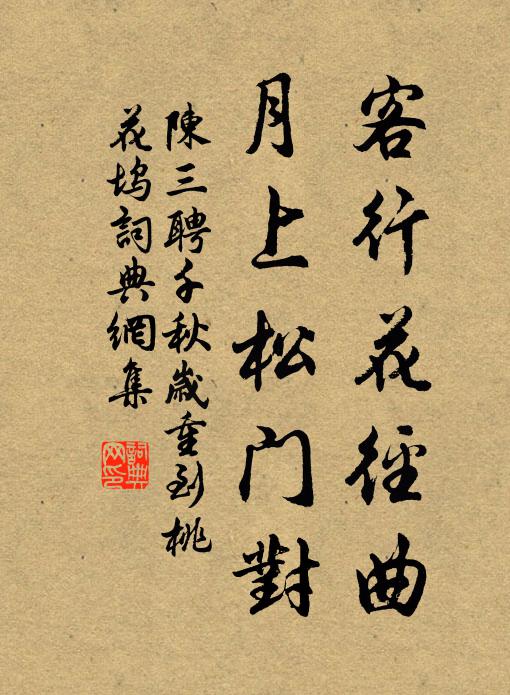 客行花徑曲
月上松门對
陳三聘千秋歲重到桃
花塢詞典網集
詞典网印